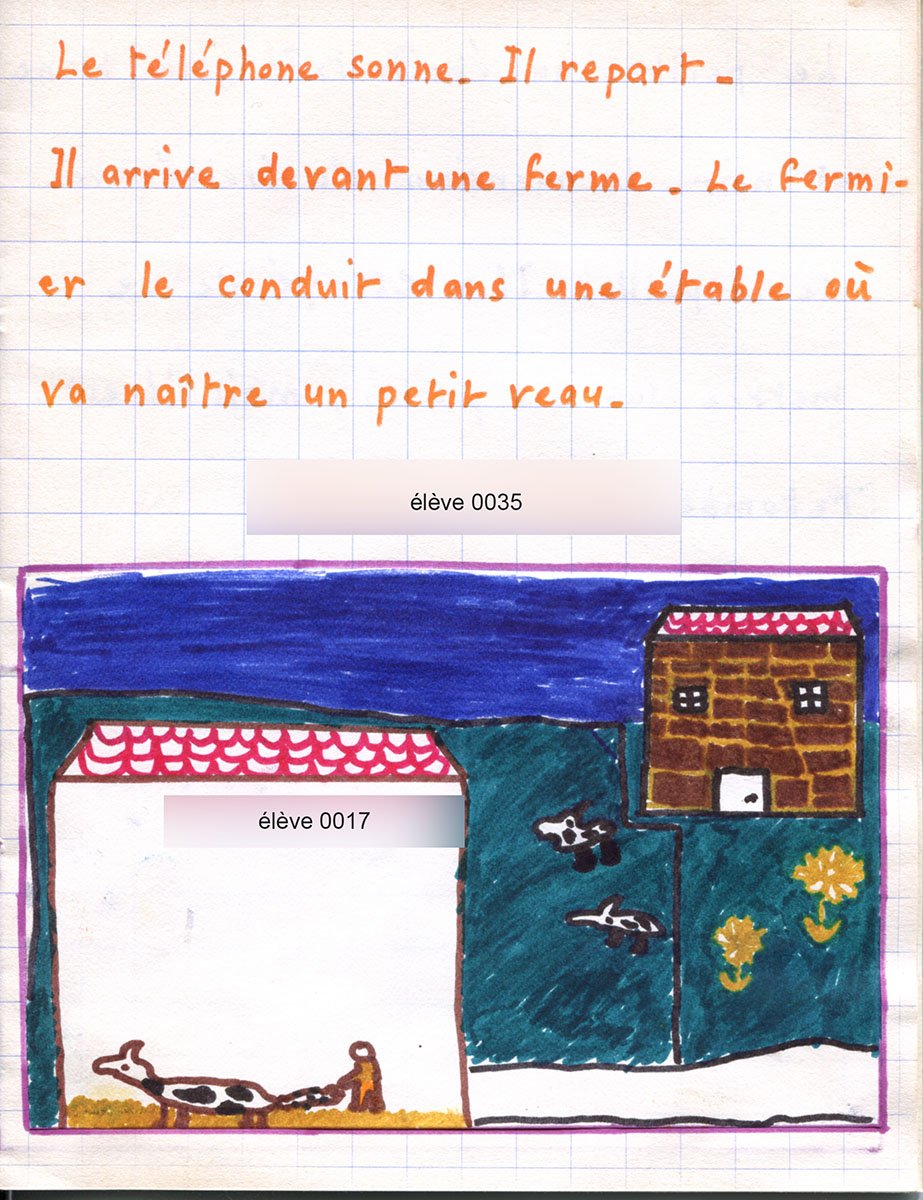 Le téléphone sonne. Il repart.
Il arrive devant une ferme. Le fermi-
er le conduit dans une étable où
va naître un petit veau.
élève 0035
élève 0017